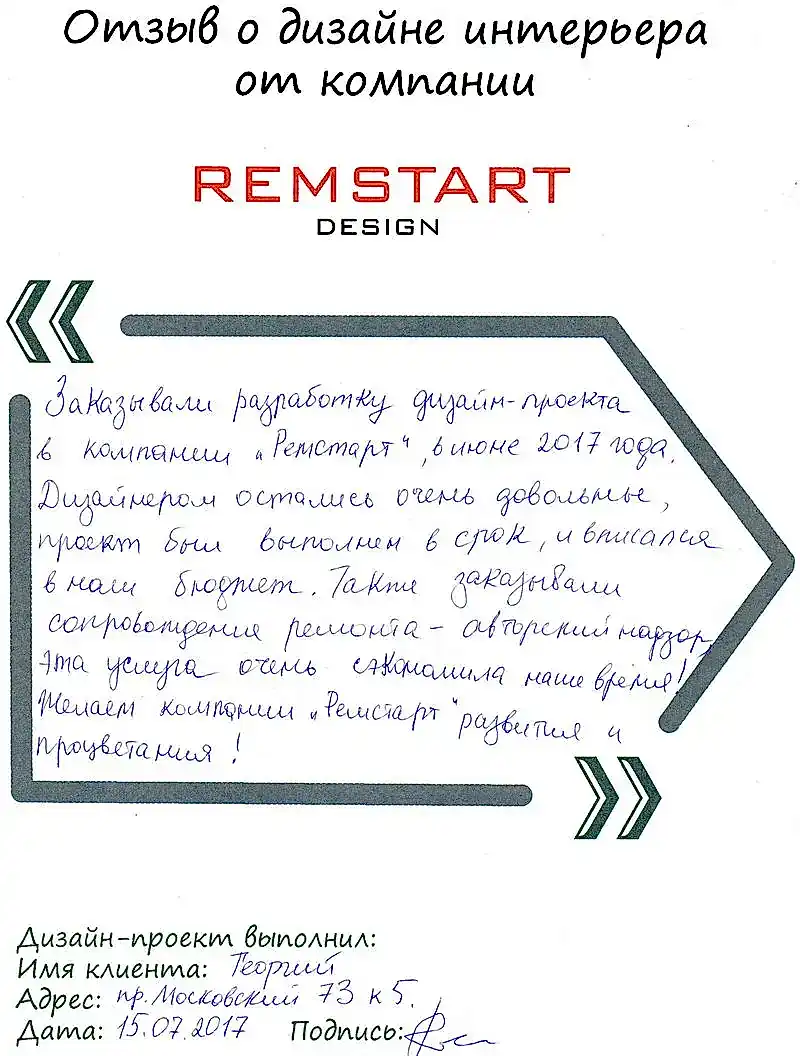 Отзыв о дизайне интерьера
от компании
REMSTART
DESIGN
Заказывали разработку дизайн-проекта
в компании „Ремстарт“, в июне 2017 года.
Дизайнером остались очень довольные,
проект был выполнен в срок, и вписался
в наш бюджет. Также заказывали
сопровождение ремонта - авторский надзор,
эта услуга очень сэкономила наше время!
Желаем компании „Ремстарт“ развития и
процветания!
Дизайн-проект выполнил:
Имя клиента: Георгий
Адрес: пр. Московский 73 к 5.
Дата: 15.07.2017 Подпись: